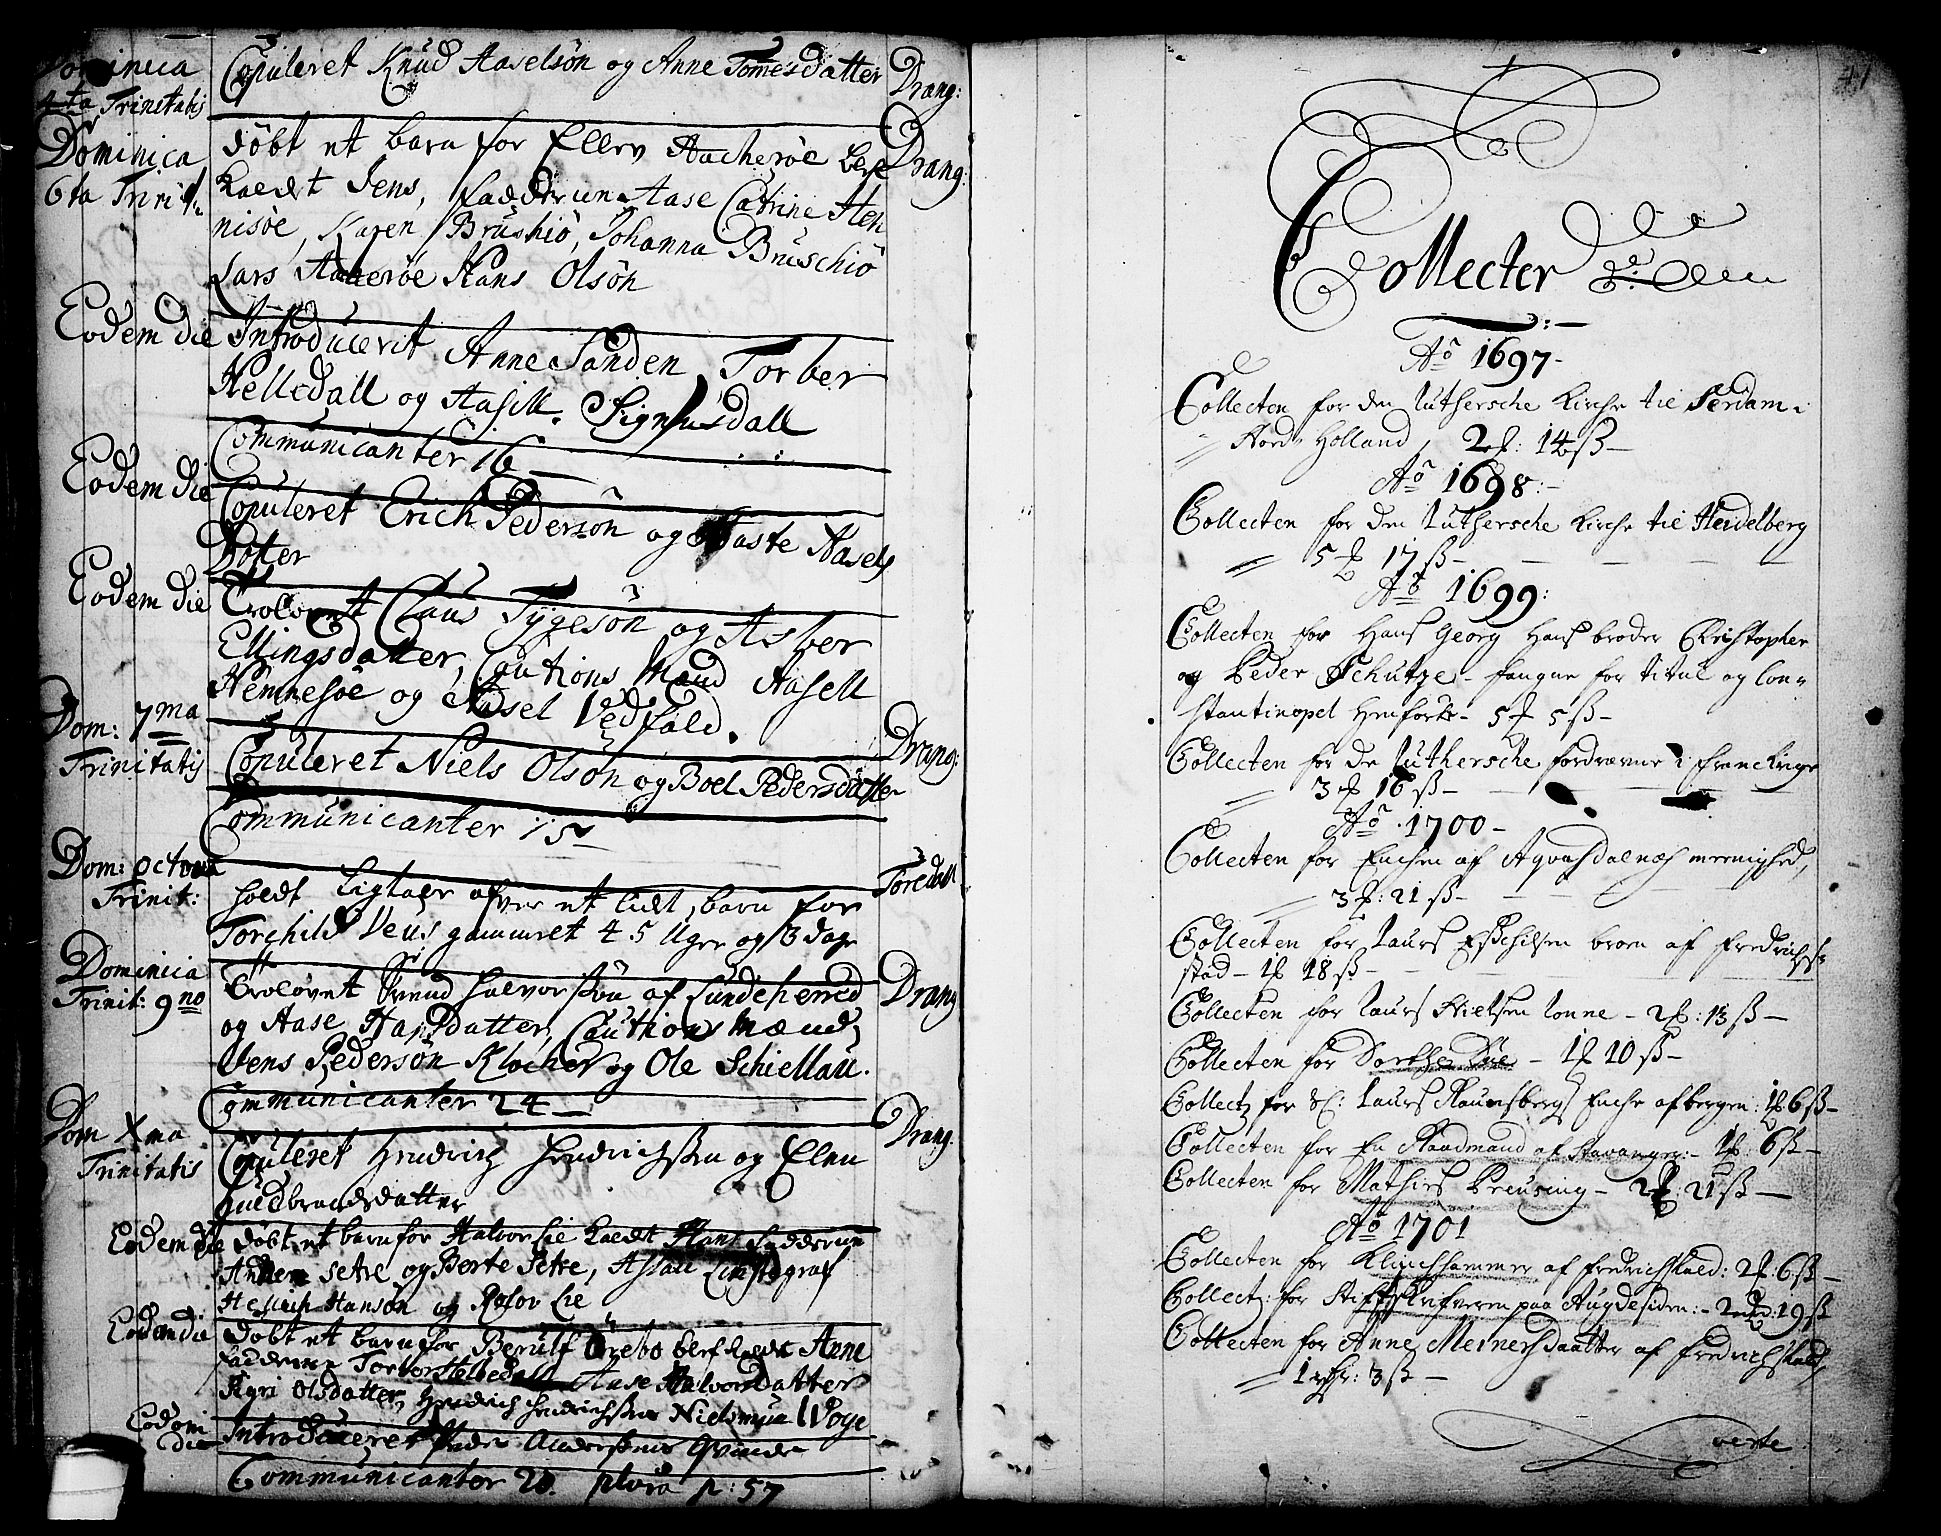 Dominica
4ta Trinitatis
Copuleret Knud Aaselsön og Anne Tomesdatter
Drang:
Dominica
6ta Trinit:
Döbt et barn for Ellev Aacheröe
Drang:
kaldt Jens, fadderne Aase Catrine Hen
nisöe, Karen Bruskiö, Johanna Bruschiö
Lars Aacheröe Hans Olsön
Eodem die
Introducerit Anne Sanden, Torber
Helledall og Aasill. Signusdall
Communicanter 16
Eodem die
Copuleret Erich Pedersön og Aaste Aasels
Dotter
Eodem die
Troloved Claus Tygesön og Asber
Ellingsdatter, Cautions Mænd Aasell
Hennesöe og Aasel Vedfald.
Dom: 7ma
Trinitatis
Copuleret Niels Olsön og Boel Pedersdatter
Drang:
Communicanter 15
Dom: octova
Trinit:
holdt Ligtale over et lidt barn for
Toredall
Torchild Veus gammelt 4 5 Uger og 3 dage
Dominica
Trinit: 9no
Trolovet Svend Halvorsön af Sundeherred
Drang
og Aase datter, Cautions Mænd
Jens Pedersön Klocker og Ole Schiellau.
Communicanter 24
Dom Xma
Trinitatis
Copuleret Hendrich Hendrichsen og Elen
Drang:
Guldbrandsdatter
Eodem die
döbt et barn for Halvor Lie kaldt Hans fadderne
Anders Setre og Berte Setre, Aslau
Hellich Hansön og Rolov Lie
Eodem die
döbt et barn for Berulf Örebo kaldt Anne
fadderne Torbor Helledall Aase Halvorsdatter
Sigri Olsdatter, Hendrich Hendrichsen Niels Moe
Eodem
die
Introduceret Peder Andersens Qvinde
Communicanter 20. plura p: 57
41
Collecter
Ao 1697
Collecten for den Luthersche Kirche til Serdam i
Nord Holland, 2 : 14 ß
Ao 1698:
Collecten for den Luthersche Kirche til Heidelberg
5 17 ß
Ao 1699:
Collecten for Hans Georg Hans broder Christopher
og Peder Schutze fangne for tirul og Con=
stantinopel henförte 5 5 ß
Collecten for de Luthersche fordrevne i franckrige
3 16 ß
Ao 1700
Collecten for Enchen af Aqvasdalnæs meenighed,
3 : 21 ß
Collecten for Laurs Eschilsen broen af fredrichs=
stad 1 18 ß
Collecten for Laurs Nielsen Lonne 2 : 13 ß
Collecten for Dorthe 1 10 ß
Collect for Laurs Raunsbergs Enche af bergen: 1 6 ß
Collecten for En Raadmand af Stavanger: 1 6 ß
Collecten for Mathies Preusing 2 : 21 ß
Ao 1701
Collecten for Klinchhammer af fredrichshald: 2 : 6 ß
Collect: for Stiftskrifveren paa Augdesiden: 2 : 19 ß
Collecten for Anne Meinersdaatter af fredrichshald,
1 : 3 ß
verte